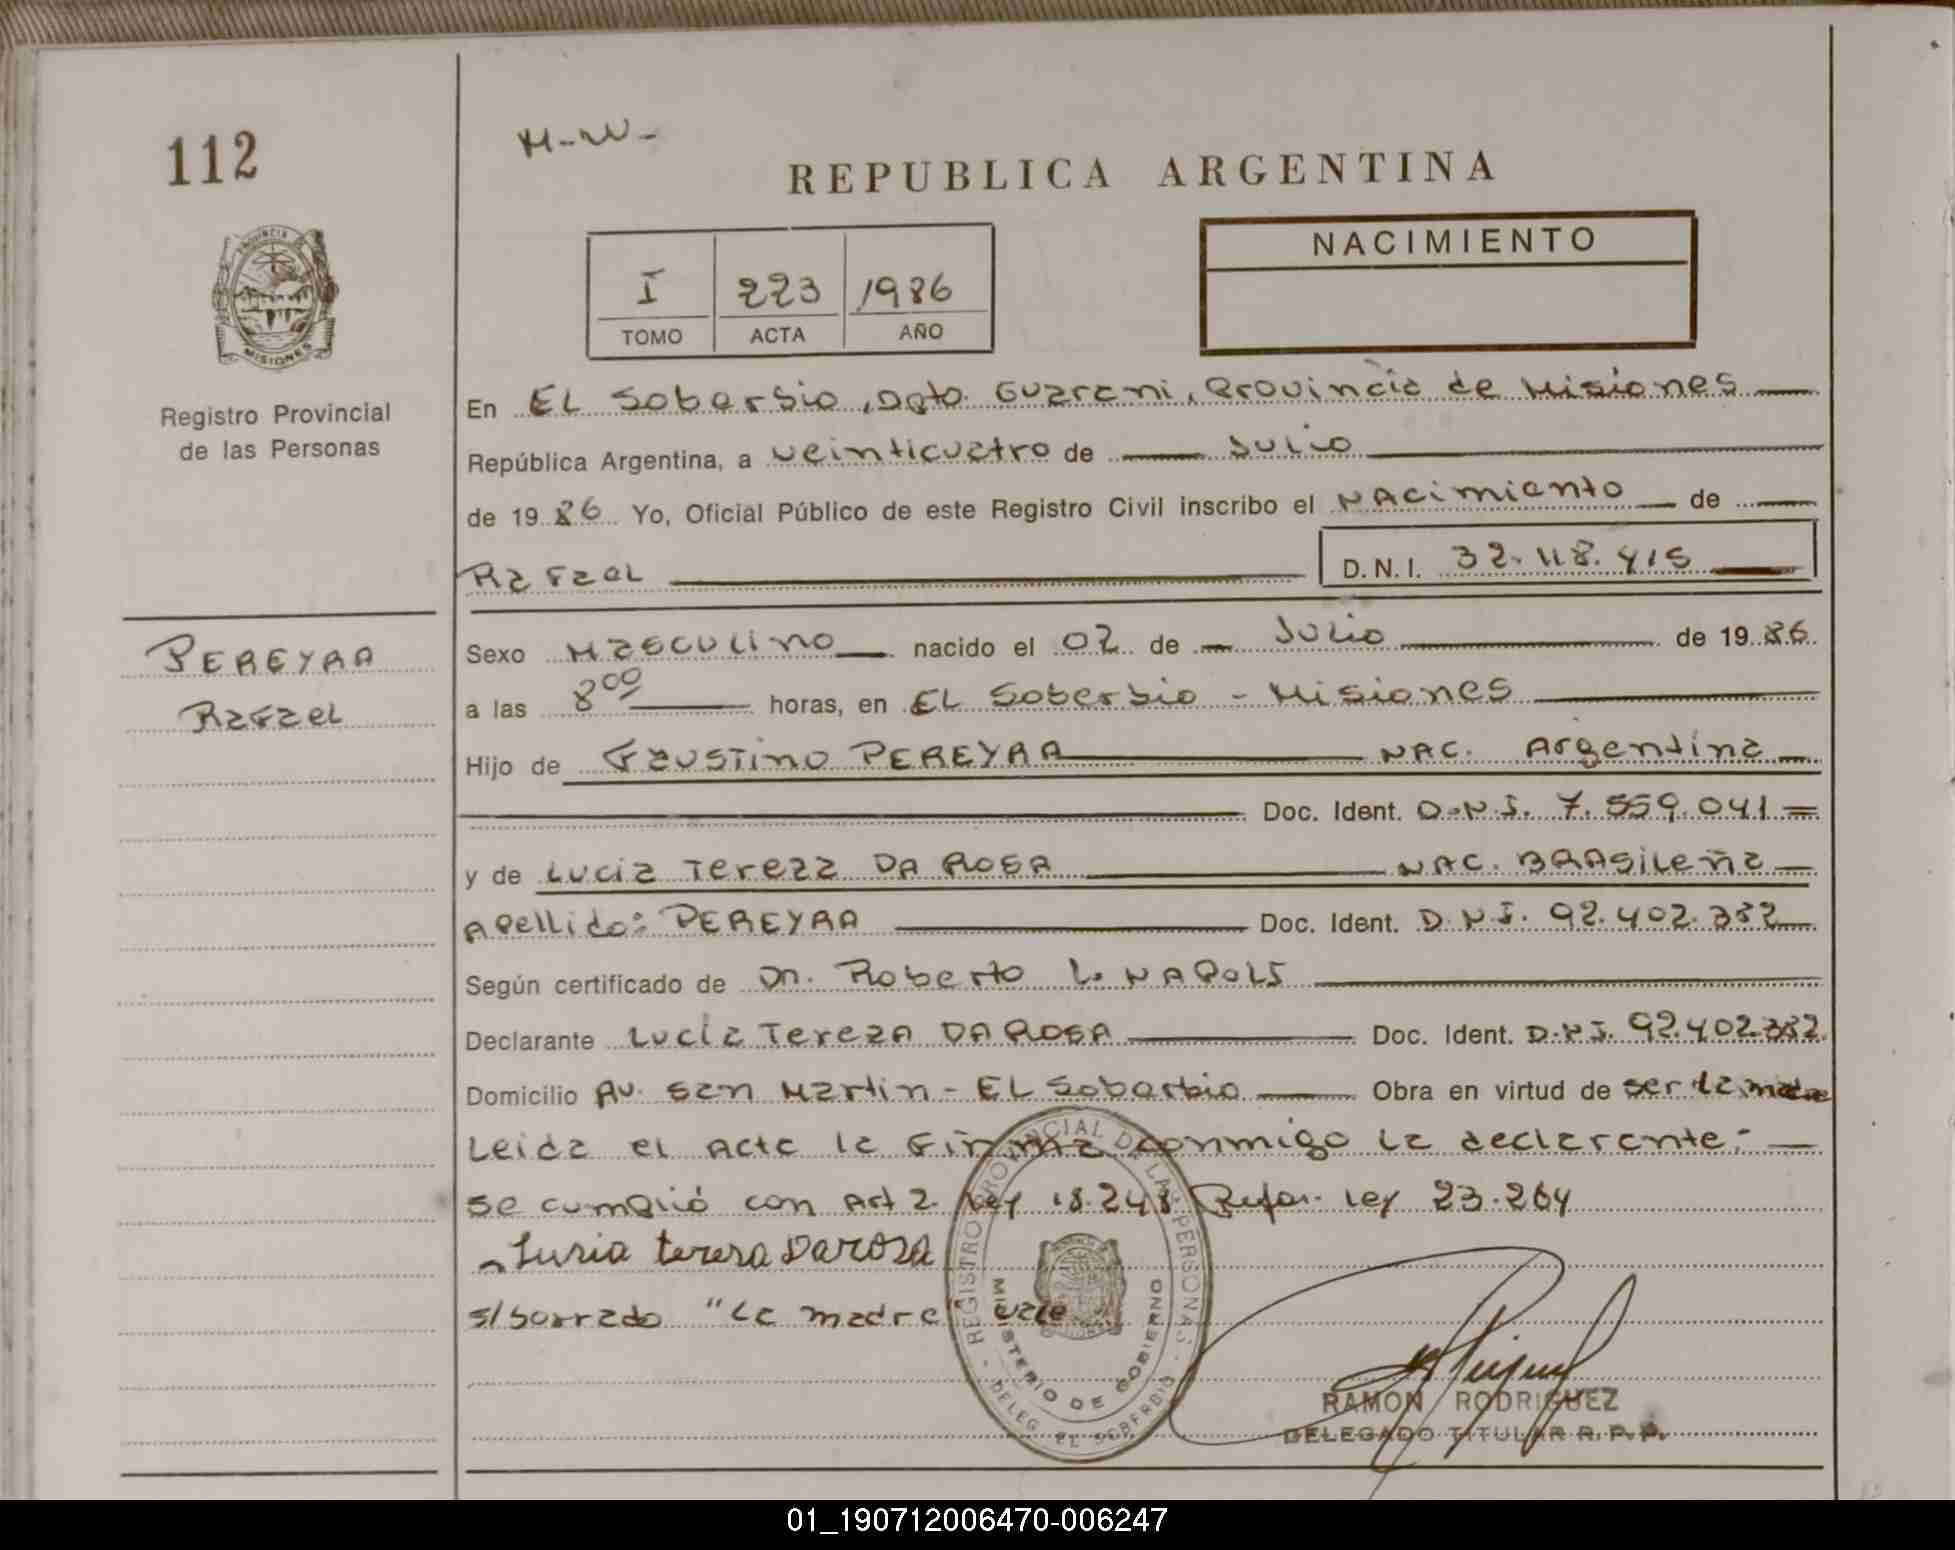 112
M-W-
REPUBLICA ARGENTINA
I 223 1986
TOMO ACTA AÑO
NACIMIENTO
PROVINCIA DE
MISIONES
Registro Provincial
de las Personas
En EL Soberbio, Dpto. Guarani, Provincia de Misiones
República Argentina, a veinticuatro de Julio
de 1986 Yo, Oficial Público de este Registro Civil inscribo el Nacimiento de
Rafael D.N.I. 32.118.415
PEREYRA
Rafael
Sexo Masculino nacido el 02 de Julio de 1986.
a las 8⁰⁰ horas, en EL Soberbio - Misiones
Hijo de Faustino PEREYRA NAC. Argentina
Doc. Ident. D.N.I. 7.559.041 =
y de Lucia Tereza DA ROSA NAC. BRASileña
Apellido: PEREYRA Doc. Ident. D.N.I. 92.402.332
Según certificado de Dr. Roberto L. NAPOLI
Declarante Lucia Tereza DA ROSA Doc. Ident. D.N.I. 92.402.332.
Domicilio Av. San Martin - EL Soberbio Obra en virtud de ser la madre
Leida el Acta la Firma conmigo la declarante.-
se cumplió con Art 2. Ley 18.248 Refor. Ley 23.264
Lusia teresa Darosa
s/borrado "La madre" vale
REGISTRO PROVINCIAL DE LAS PERSONAS
MINISTERIO DE GOBIERNO
DELEG. EL SOBERBIO
RAMON RODRIGUEZ
DELEGADO TITULAR R. P. P.
01_190712006470-006247